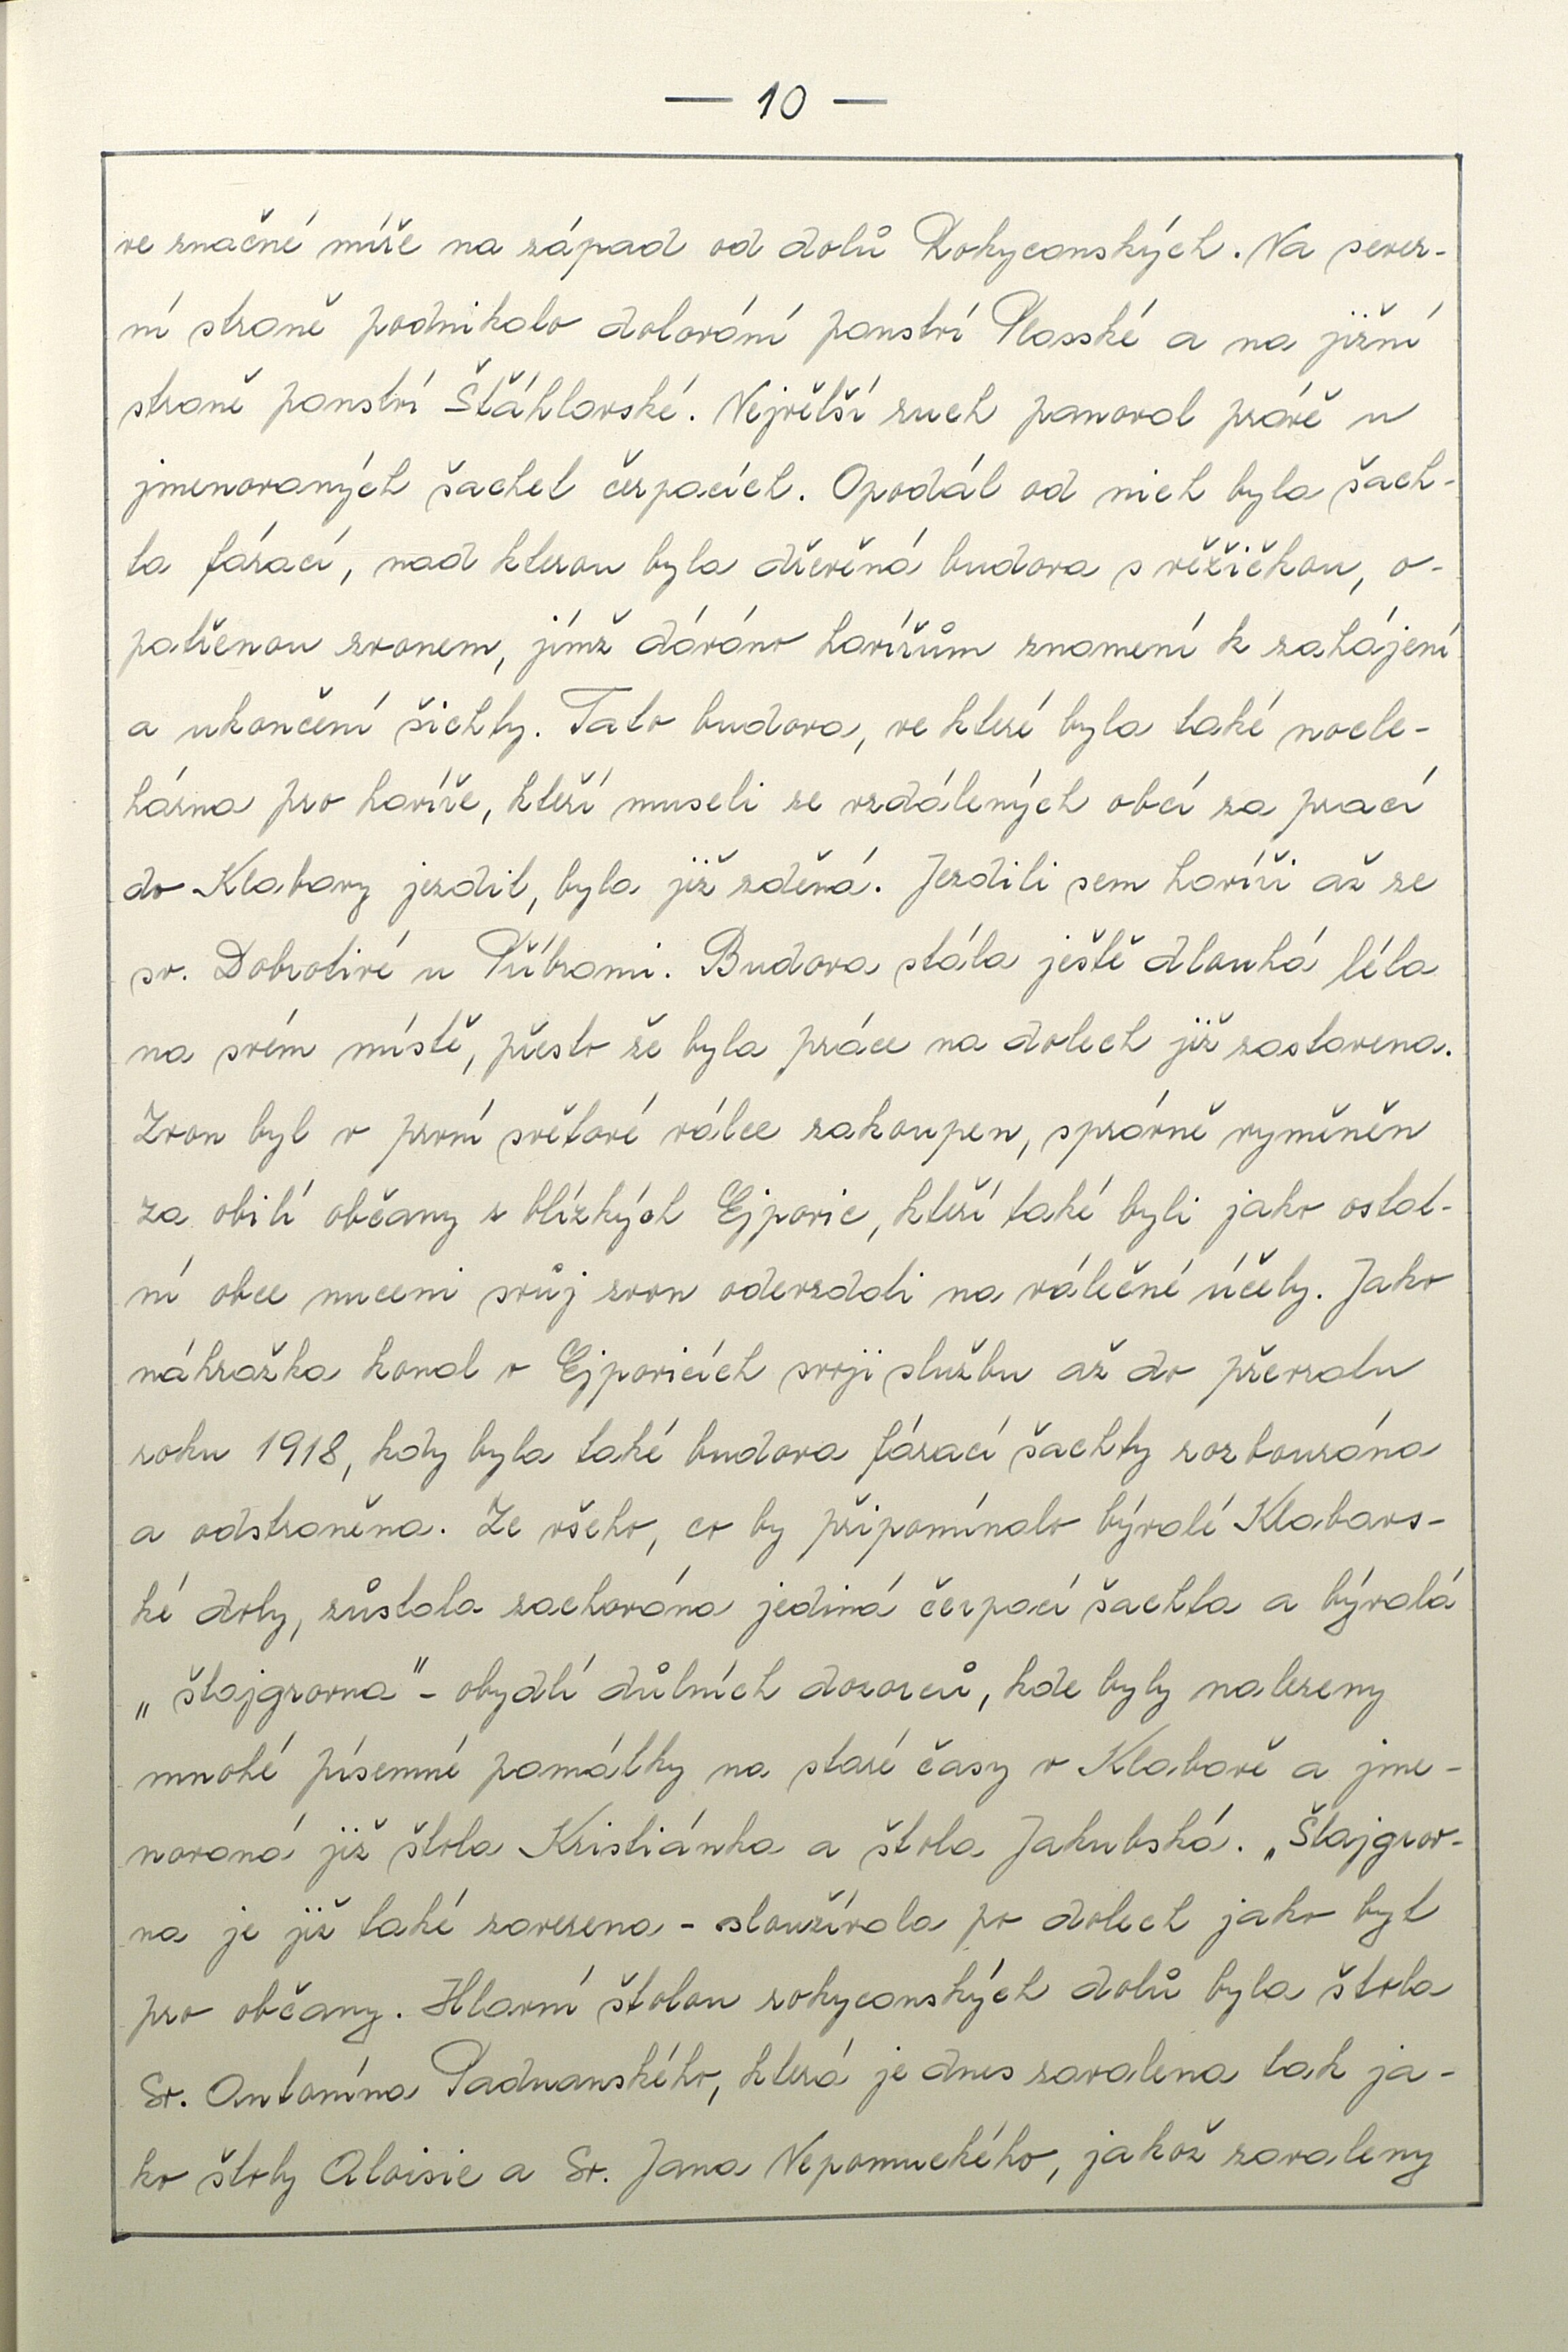 — 10 —
ve značné míře na západ od dolů Rokycanských. Na sever-
ní straně podnikalo dolování panství Plasské a na jižní
straně panství Šťáhlavské. Největší ruch panoval právě u
jmenovaných šachet čerpacích. Opodál od nich byla šach-
ta fárací, nad kterou byla dřevěná budova s věžičkou, o-
patřenou zvonem, jímž dáváno havířům znamení k zahájení
a ukončení šichty. Tato budova, ve které byla také nocle-
hárna pro havíře, kteří museli ze vzdálených obcí za prací
do Klabavy jezdit, byla již zděná. Jezdili sem havíři až ze
sv. Dobrotivé u Příbrami. Budova stála ještě dlouhá léta
na svém místě, přesto že byla práce na dolech již zastavena.
Zvon byl v první světové válce zakoupen, správně vyměněn
za obilí občany z blízkých Ejpovic, kteří také byli jako ostat-
ní obce nuceni svůj zvon odevzdati na válečné účely. Jako
náhražka konal v Ejpovicích svoji službu až do převratu
roku 1918, kdy byla také budova fárací šachty rozbourána
a odstraněna. Ze všeho, co by připomínalo bývalé Klabavs-
ké doly, zůstala zachována jediná čerpací šachta a bývalá
„štajgrovna" - obydlí důlních dozorců, kde byly nalezeny
mnohé písemné památky na staré časy v Klabavě a jme-
novaná již štola Kristiánka a štola Jakubská. „Štajgrov-
na je již také zavezena - sloužívala po dolech jako byt
pro občany. Hlavní štolou rokycanských dolů byla štola
Sv. Antonína Paduanského, která je dnes zavalena tak ja-
ko štoly Aloisie a Sv. Jana Nepomuckého, jakož zavaleny